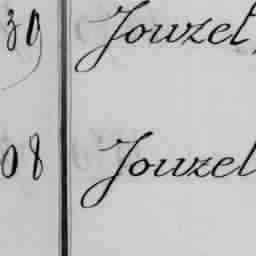 39 Jouzel
08 Jouzel